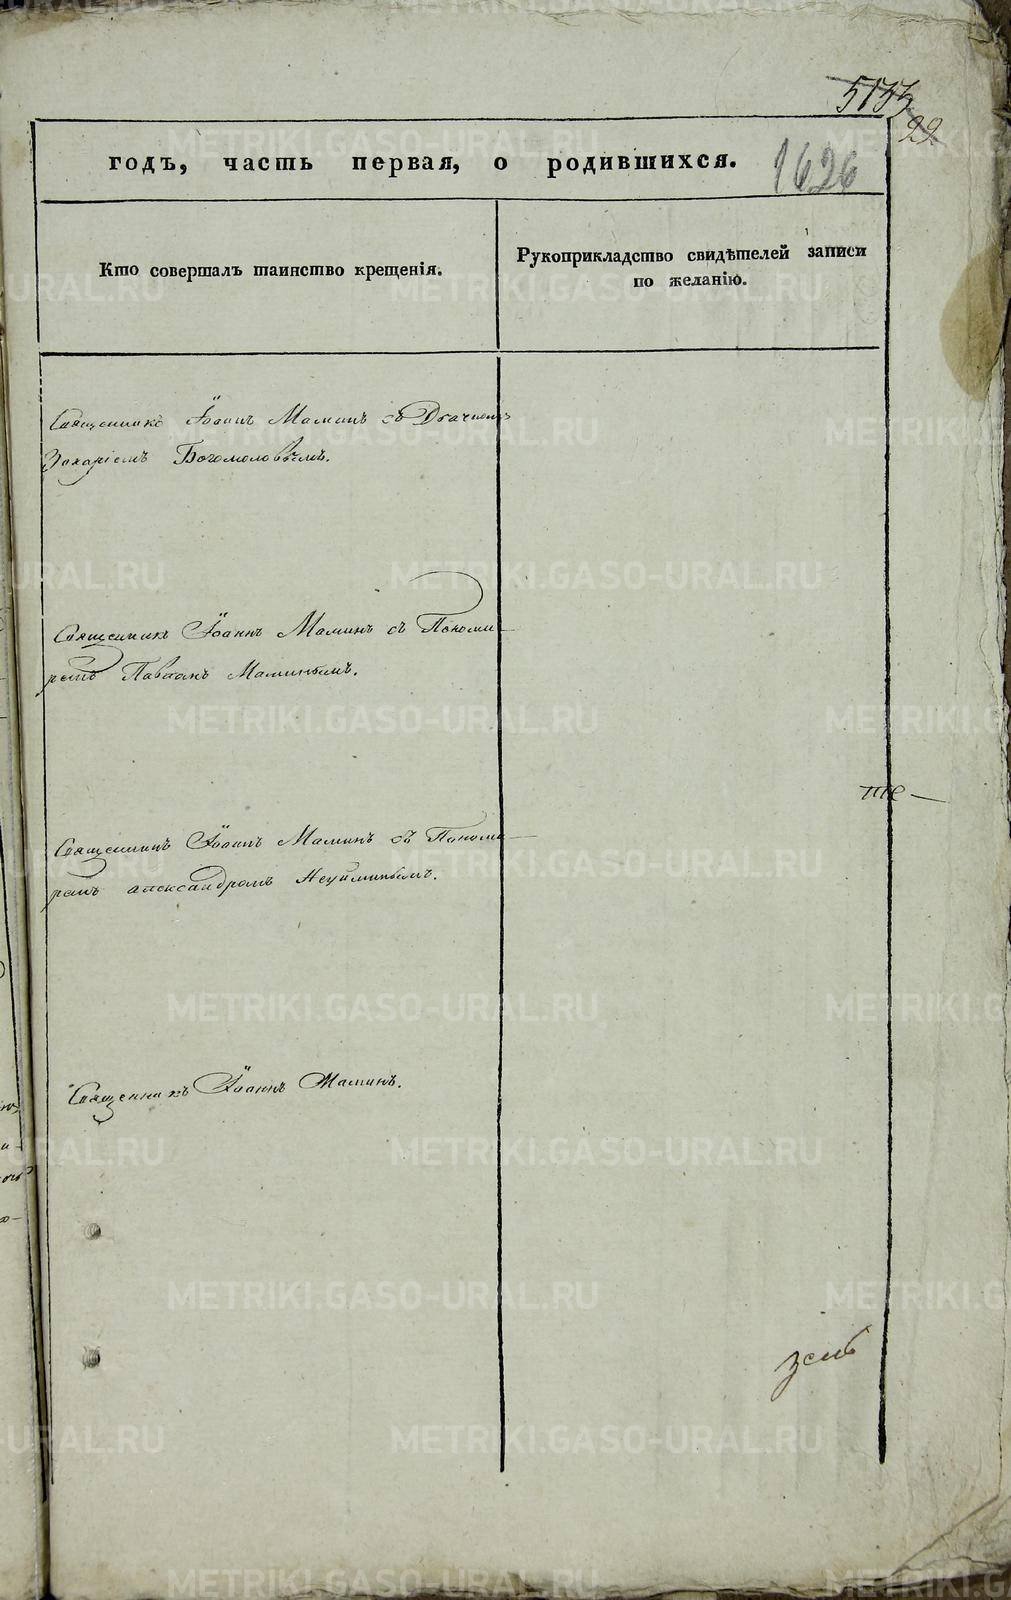 5133
22
годъ, часть первая, о родившихся.
1626
Кто совершалъ таинство крещенія.
Рукоприкладство свидѣтелей записи
по желанію.
Священникъ Іоаннъ Маминъ съ Дьячкомъ
Захаріемъ Богомоловымъ.
Священникъ Іоаннъ Маминъ съ Понома-
ремъ Маминымъ.
Священникъ Іоаннъ Маминъ съ Понома-
ремъ Александромъ Неуйминымъ.
Священникъ Іоаннъ Маминъ.
METRIKI.GASO-URAL.RU